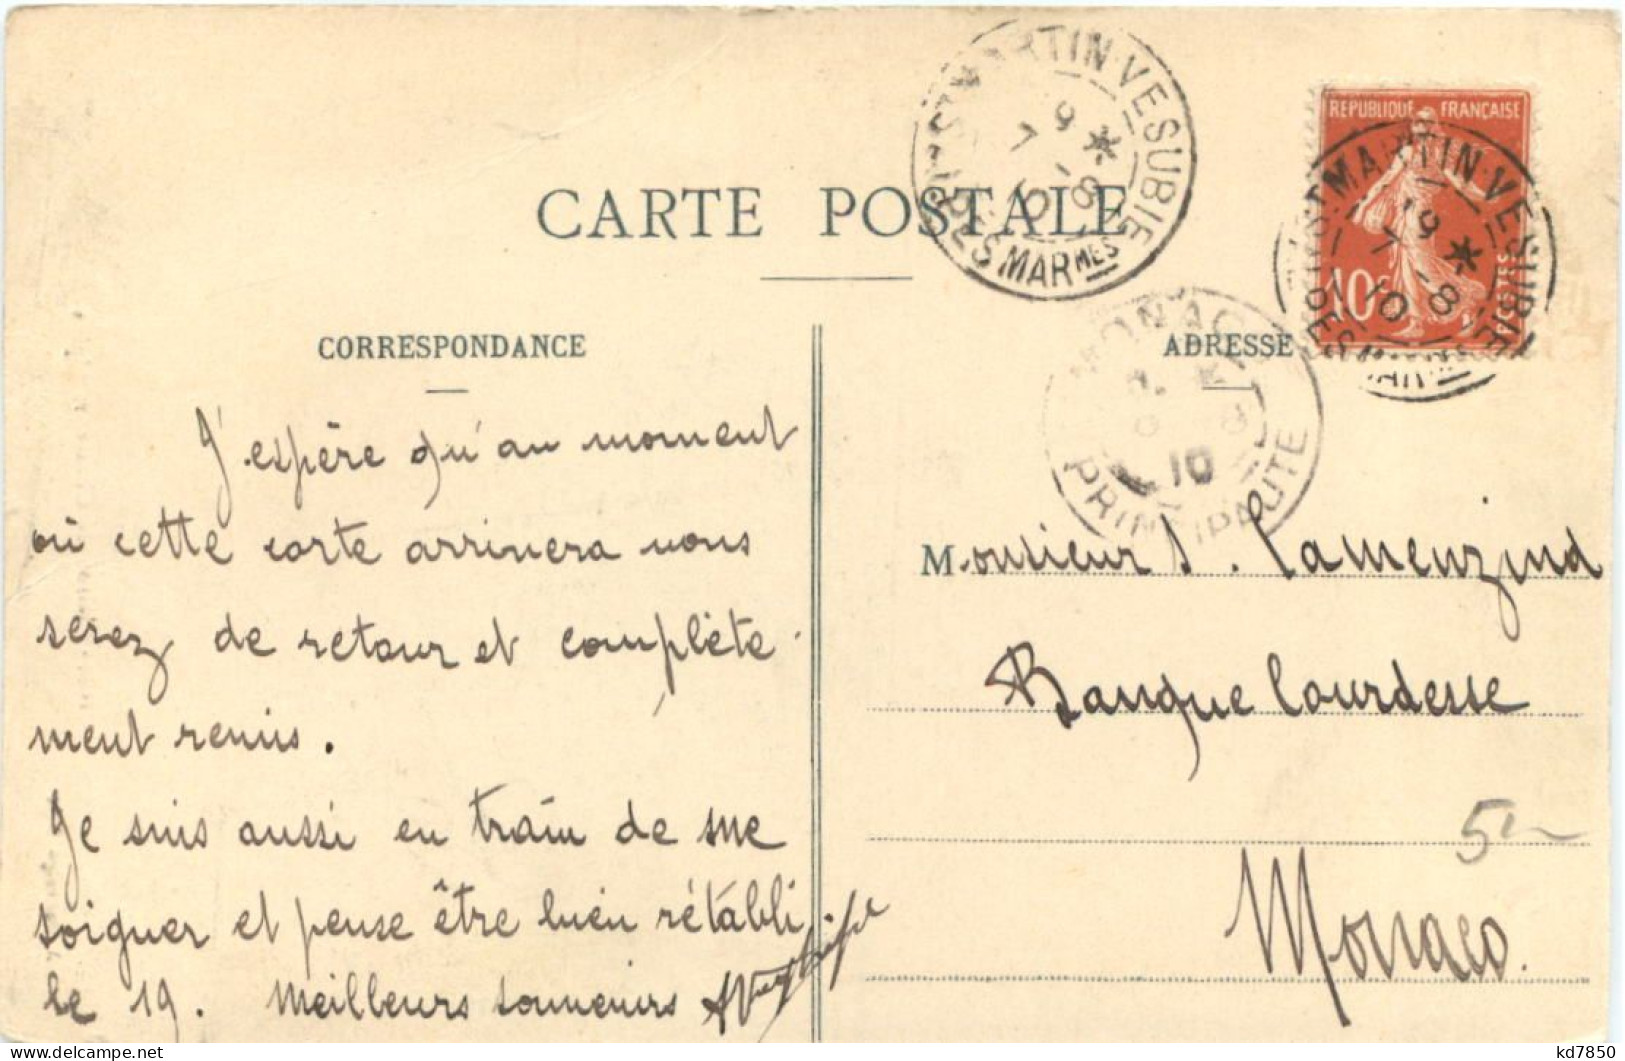 CARTE POSTALE
CORRESPONDANCE
J'espère qu'au moment
où cette carte arrivera vous
serez de retour et complète-
ment remis.
Je suis aussi en train de me
soigner et pense être bien rétabli
le 19. Meilleurs souvenirs
ADRESSE
Monsieur J. Camenzind
Banque Lourdesse
Monaco.
5
REPUBLIQUE FRANÇAISE
10c
POSTES
ST MARTIN-VESUBIE
9 *
7 -8
10
ALPES MARMES
ST MARTIN-VESUBIE
9 *
7 -8
10
MONACO
10
PRINCIPAUTE
kd7850